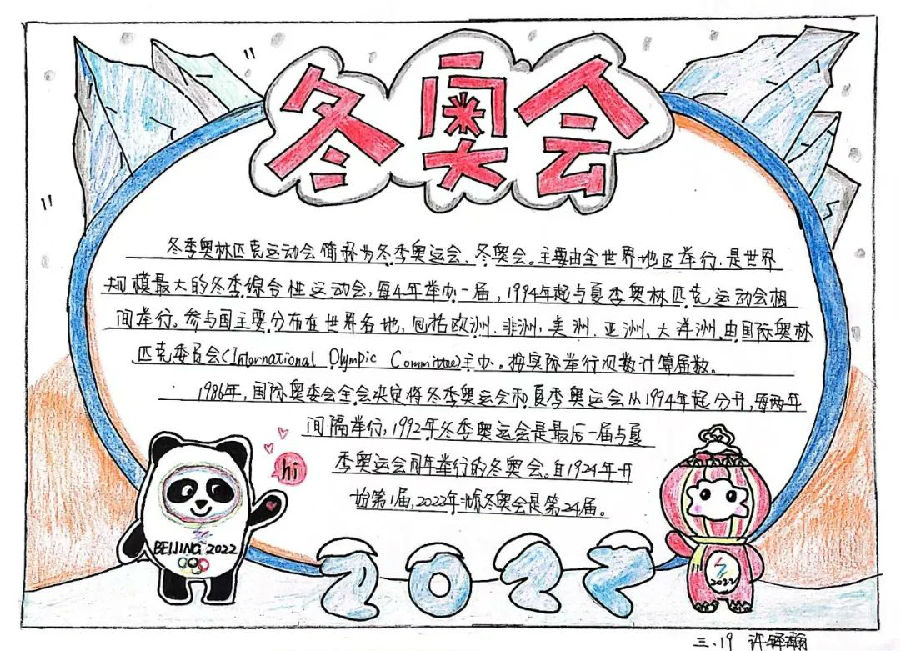 冬奥会
冬季奥林匹克运动会简称为冬季奥运会、冬奥会。主要由全世界地区举行,是世界
规模最大的冬季综合性运动会,每4年举办一届,1994年起与夏季奥林匹克运动会相
间举行。参与国主要分布在世界各地,包括欧洲、非洲、美洲、亚洲、大洋洲。由国际奥林
匹克委员会(International Olympic Committee)主办。按实际举行次数计算届数。
1986年,国际奥委会全会决定将冬季奥运会和夏季奥运会从1994年起分开,每两年
间隔举行,1992年冬季奥运会是最后一届与夏
季奥运会同年举行的冬奥会。自1924年开
始第1届,2022年北京冬奥会是第24届。
hi
BEIJING 2022
2022
2022
三.19 许铎瀚